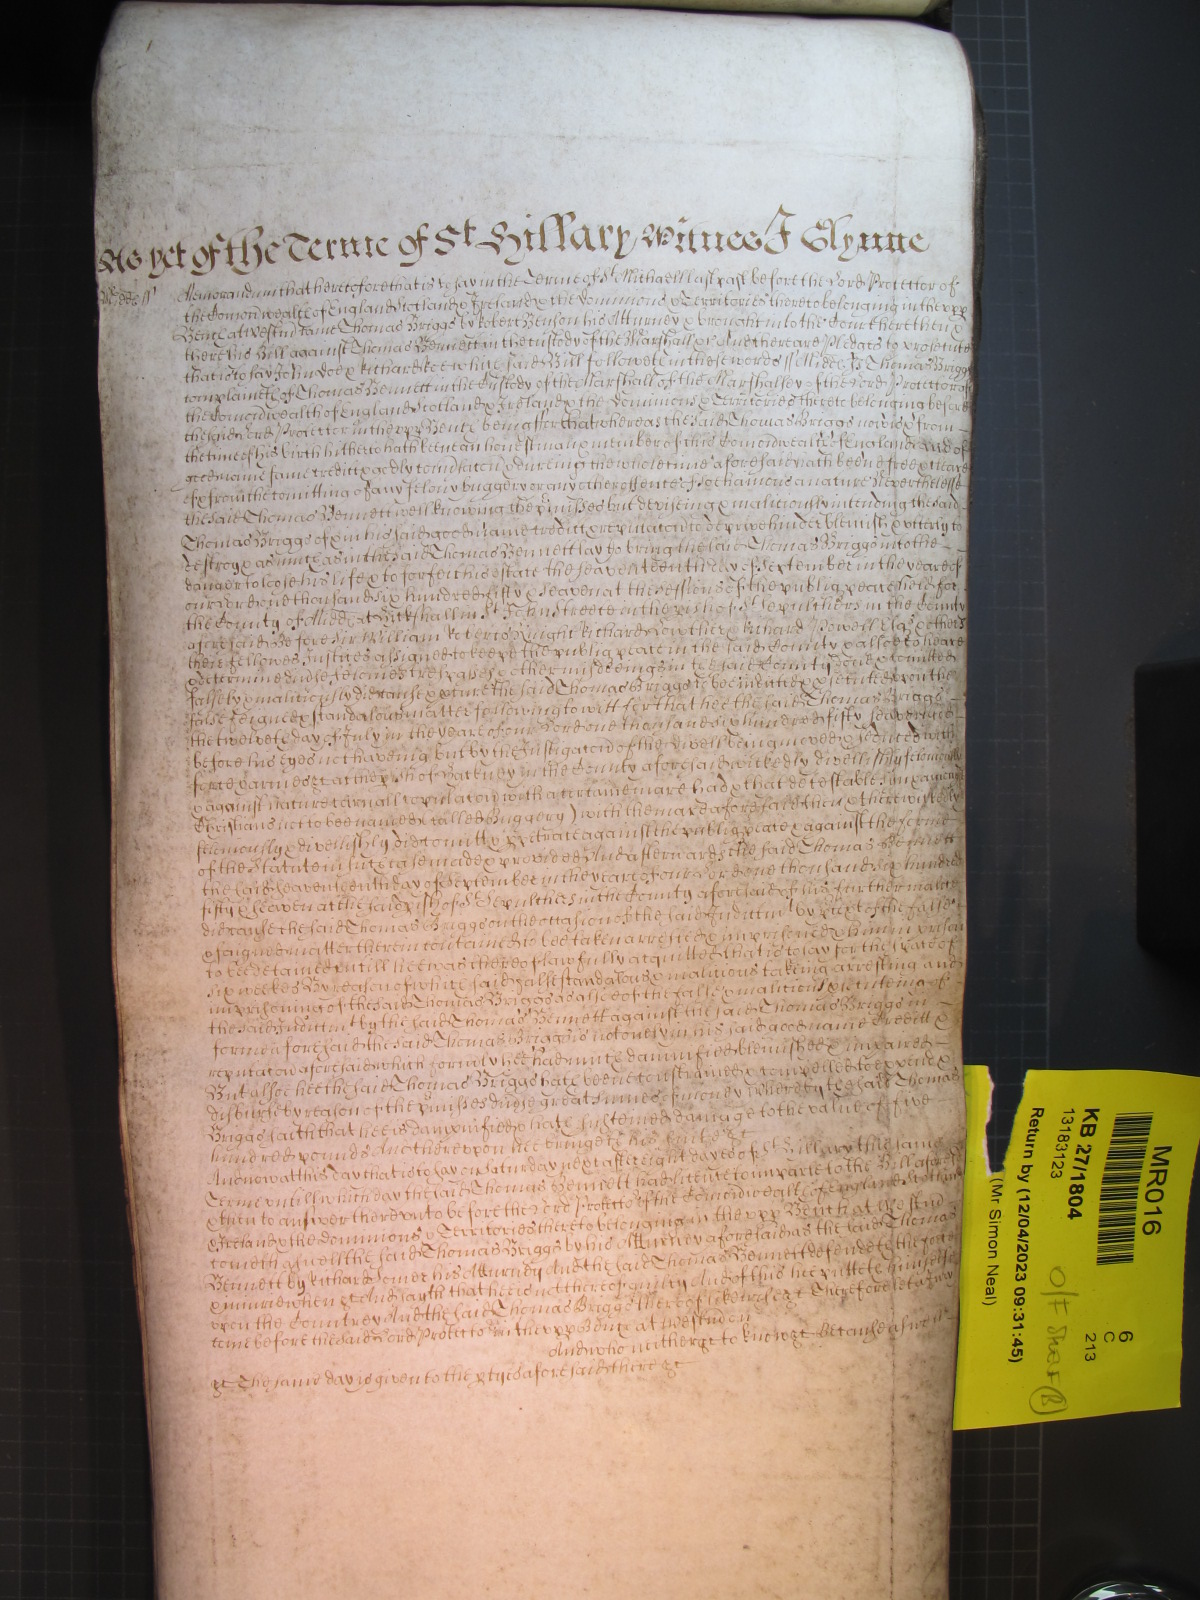 As yet of the Terme of St Hillary Witnes J Glynne
Midds ss Memorandum that heretofore that is to say in the Terme of St Michaell last past before the Lord Protector of
the Comonwealth of England Scotland & Ireland & the Dominions & Territories thereto belonging in the upp
Bench at Westm came Thomas Briggs by Robert Benson his Atturney & brought into the Court here then &
there his Bill against Thomas Bennett in the custody of the Marshall &c And there are Pledges to prosecute
that is to say John Doe & Richard Roe which said Bill followeth in these words ss Midds ss Thomas Briggs
complaineth of Thomas Bennett in the Custody of the Marshall of the Marshalsey of the Lord Protector of
the Comonwealth of England Scotland & Ireland & the Dominions & Territories thereto belonging before
the said Lord Protector in the upp Bench being after that whereas the said Thomas Briggs now is & from
the time of his birth hitherto hath been an honest man & member of this Comonwealth of England and of
good name fame creditt & godly conversacon & dureing the whole time aforesaid hath beene free & cleare
of & from the comitting of any felony buggery or any other offence of soe hainous a nature Neverthelesse
the said Thomas Bennett well knowing the p'misses but deviseing & maliciously intending the said
Thomas Briggs of & in his said good name creditt & reputacon to deprive hinder blemish & utterly to
destroy & as much as in the said Thomas Bennett lay to bring the said Thomas Briggs into the
danger to loose his life & to forfeit his estate the seaventeenth day of September in the yeare of
our Lord one thousand six hundred fifty & seaven at the sessions of the publiq peace held for
the County of Midds at Hickshall in St Johns Streete in the p'ish of St Sepulchers in the County
aforesaid before Sir William Roberts Knight Richard Powell Esqs & others
their fellowes Justices assigned to keepe the publiq peace in the said County & alsoe to heare
& determine divse felonies trespasses & other misdeeings in the said County done & comitted
falsely & maliciously did cause & p'cure the said Thomas Briggs to bee indicted & p'secuted upon the
false feigned & scandalous matter following to witt for that hee the said Thomas Briggs
the twelveth day of July in the yeare of our Lord one thousand six hundred fifty seaven God
before his eyes not haveing but by the Instigacon of the divell being moved & seduced with
force & armes &c at the p'ish of Hackney in the County aforesaid wickedly divellishly feloniously
& against nature carnall copulacon with a certaine mare had & that detestable sin (among
Christians not to bee named called Buggery) with the mare aforesaid then & there wickedly
feloniously & divellishly did comitt & p'petrate against the publiq peace & against the forme
of the Statute in such case made & provided And afterwards the said Thomas Bennett
the said seaventeenth day of September in the yeare of our Lord one thousand six hundred
fifty & seaven at the said p'ish of St Sepulchers in the County aforesaid of his further malice
did cause the said Thomas Briggs on the occasion of the said Indictmt by p'text of the false
& feigned matter therein contained to bee taken arrested & imprisoned & him in prison
to bee detained untill hee was thereof lawfully acquitted that is to say for the space of
six weekes By reason of which said false scandalous & malitious takeing arresting and
imprisoning of the said Thomas Briggs as alsoe of the false & malitious p'secuteing of
the said Indictmt by the said Thomas Bennett against the said Thomas Briggs in
forme aforesaid the said Thomas Briggs is not onely in his said good name Creditt &
reputacon aforesaid which formerly hee had much damnified blemished & impaired
But alsoe hee the said Thomas Briggs hath beene constrained & compelled to expend &
disburse by reason of the p'misses divse great sumes of money Whereby the said Thomas
Briggs saith that hee is damnified & hath susteined damage to the value of five
hundred pounds And thereupon hee bringeth his suite &c
And now at this day that is to say on Saturday next after eight dayes of St Hillary this same
Terme untill which day the said Thomas Bennett had licence to imparle to the Bill aforesd
& then to answer thereunto before the Lord Protector of the Comonwealth of England Scotland
& Ireland & the Dominions & Territories thereto belonging in the upp Bench at Westm
cometh aswell the said Thomas Briggs by his Atturney aforesaid as the said Thomas
Bennett by Richard Comer his Atturney And the said Thomas Bennett defendeth the force
& iniurie when &c And sayth that hee is not thereof guilty And of this hee putteth himselfe
upon the Countrey And the said Thomas Briggs thereof likewise &c Therefore let a Jury
come before the said Lord Protector in the upp Bench at Westm on
And who neither &c to knowe &c Because aswell
&c The same day is given to the p'tyes aforesaid there &c
MR016
KB 27/1804
13183123
Return by (12/04/2023 09:31:45)
(Mr Simon Neal)
6
C
213
O/S